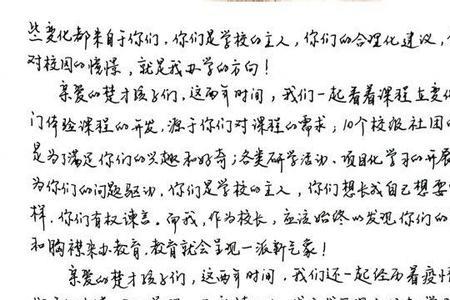 些变化都来自于你们，你们是学校的主人，你们的合理化建议，
对校园的憧憬，就是我办学的方向！
亲爱的楚才孩子们，这两年时间，我们一起看着课程在变化
门体验课程的开发，源于你们对课程的需求；10个校级社团的
是为了满足你们的兴趣和好奇；各类研学活动、项目化学习的开展
为你们的问题驱动，你们是学校的主人，你们想长成自己想要的
样，你们有权谏言。而我，作为校长，应该始终以发现你们的
和胸襟来办教育，教育就会呈现一派新气象！
亲爱的楚才孩子们，这两年时间，我们还一起经历着疫情